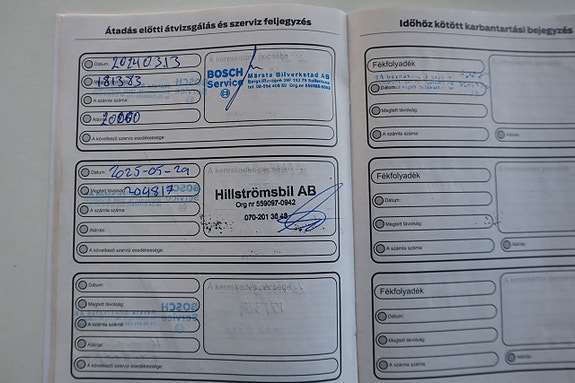 Átadás előtti átvizsgálás és szerviz feljegyzés
Dátum: 20240313
181383
A számla száma:
20000
A következő szerviz esedékessége:
BOSCH Service
Märsta Bilverkstad AB
Dátum: 2025-05-29
Megtett távolság: 204817
A számla száma:
Aláírás:
A következő szerviz esedékessége:
Hillströmsbil AB
Org nr 559097-0942
070-201 36 48
Dátum:
Megtett távolság:
A számla száma:
Aláírás:
A következő szerviz esedékessége:
Időhöz kötött karbantartási bejegyzés
Fékfolyadék
Dátum:
Megtett távolság:
A számla száma:
Aláírás:
Fékfolyadék
Dátum:
Megtett távolság:
A számla száma:
Aláírás:
Fékfolyadék
Dátum:
Megtett távolság:
A számla száma:
Aláírás: